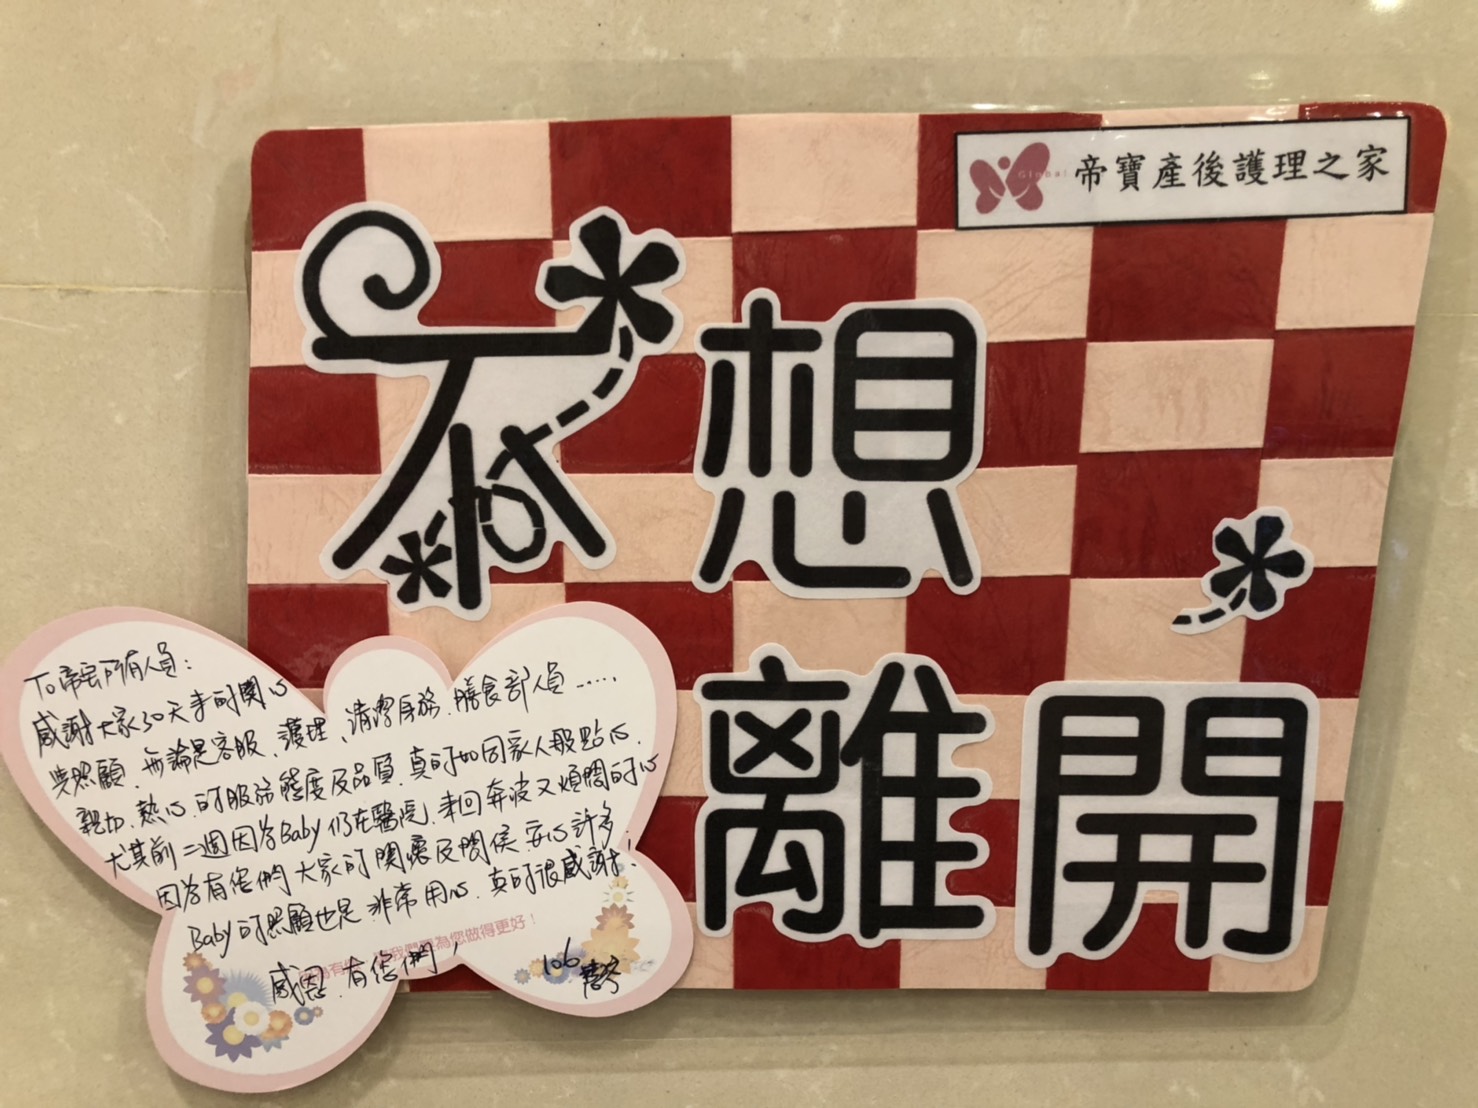 Global 帝寶產後護理之家
不想
離開
To帝宝所有人員：
感謝大家30天來的關心
與照顧．無論是客服、護理、清潔房務、膳食部人員……
親切、熱心的服務態度及品質．真的如同家人般貼心．
尤其前二週因為Baby仍在醫院．來回奔波又煩悶的心
因為有您們大家的關懷及問候．安心許多！
Baby的照顧也是非常用心．真的很感謝！
感恩．有您們！
為您做得更好！
106